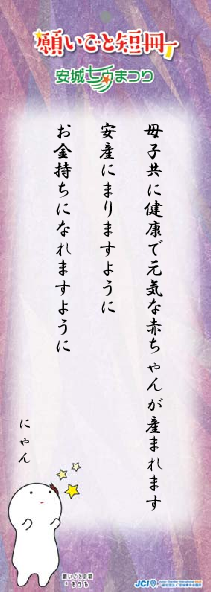 願いごと短冊
安城七夕まつり
母子共に健康で元気な赤ちゃんが産まれます
安産にまりますように
お金持ちになれますように
にゃん
願いごと短冊
JCI